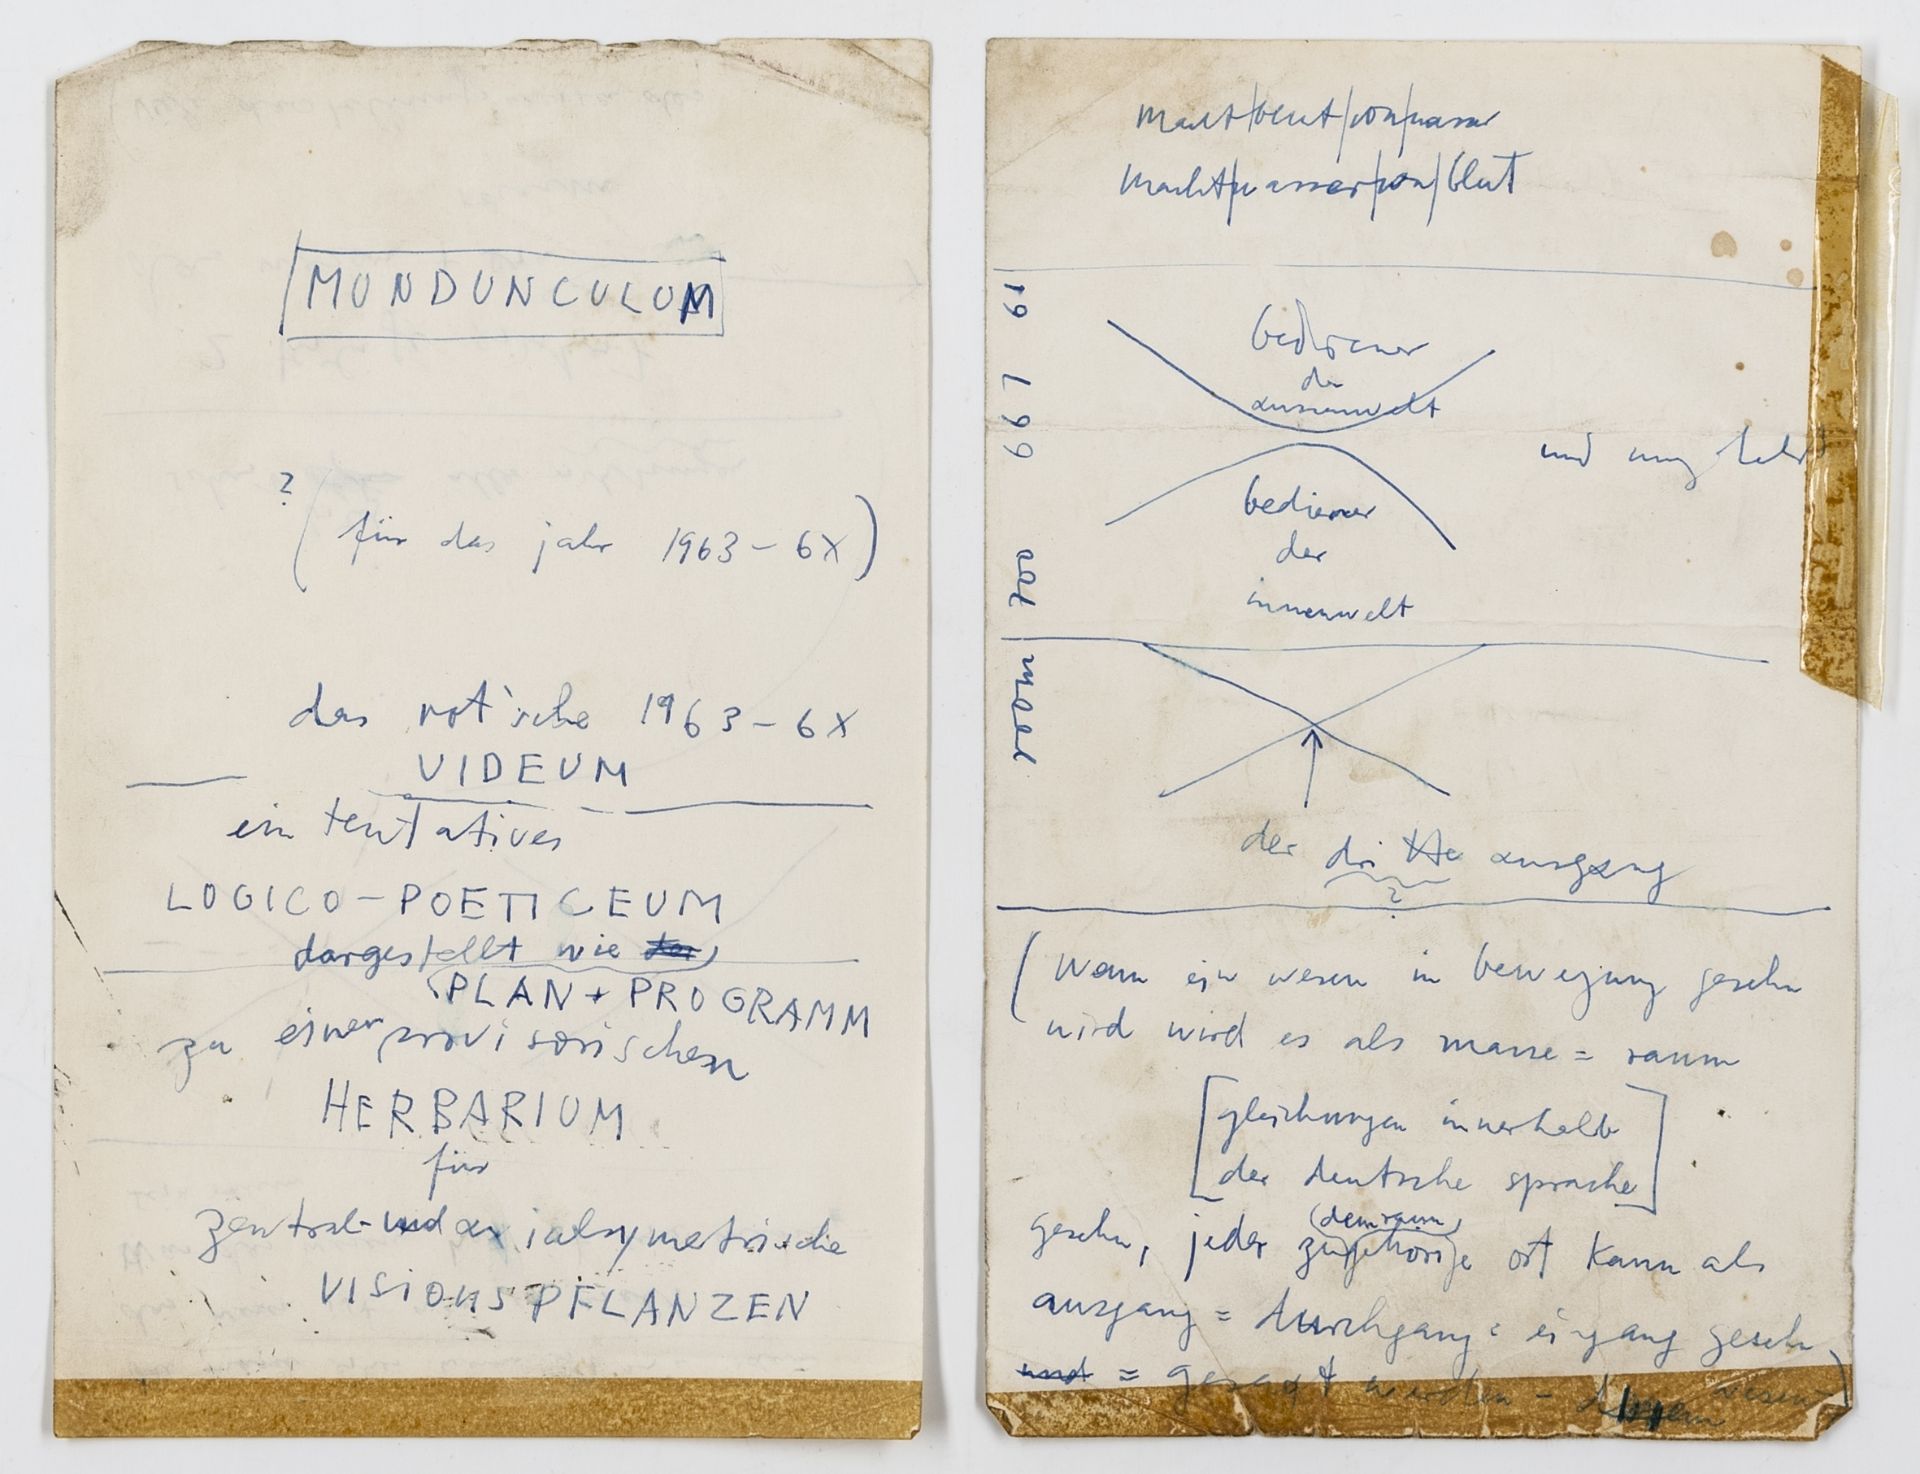 MUNDUNCULUM
?
(für das jahr 1963 – 6X)
das rot'sche 1963 – 6X
VIDEUM
ein tentatives
LOGICO – POETICEUM
dargestellt wie der
(PLAN + PROGRAMM
zu einer provisorischen
HERBARIUM
für
zentral- und axialsymetrische
VISIONSPFLANZEN
macht/blut/von/wasser
macht/wasser/von/blut
bediener
der
aussenwelt
und umgekehrt
bediener
der
innenwelt
der dritte ausgang
?
(wenn ein wesen in bewegung gesehn
wird wird es als masse = raum
[gleichungen innerhalb
der deutsche sprache]
(dem raum)
gesehn, jeder zugehörige ort kann als
ausgang = durchgang = eingang gesehn
und = gesagt werden – wesen)